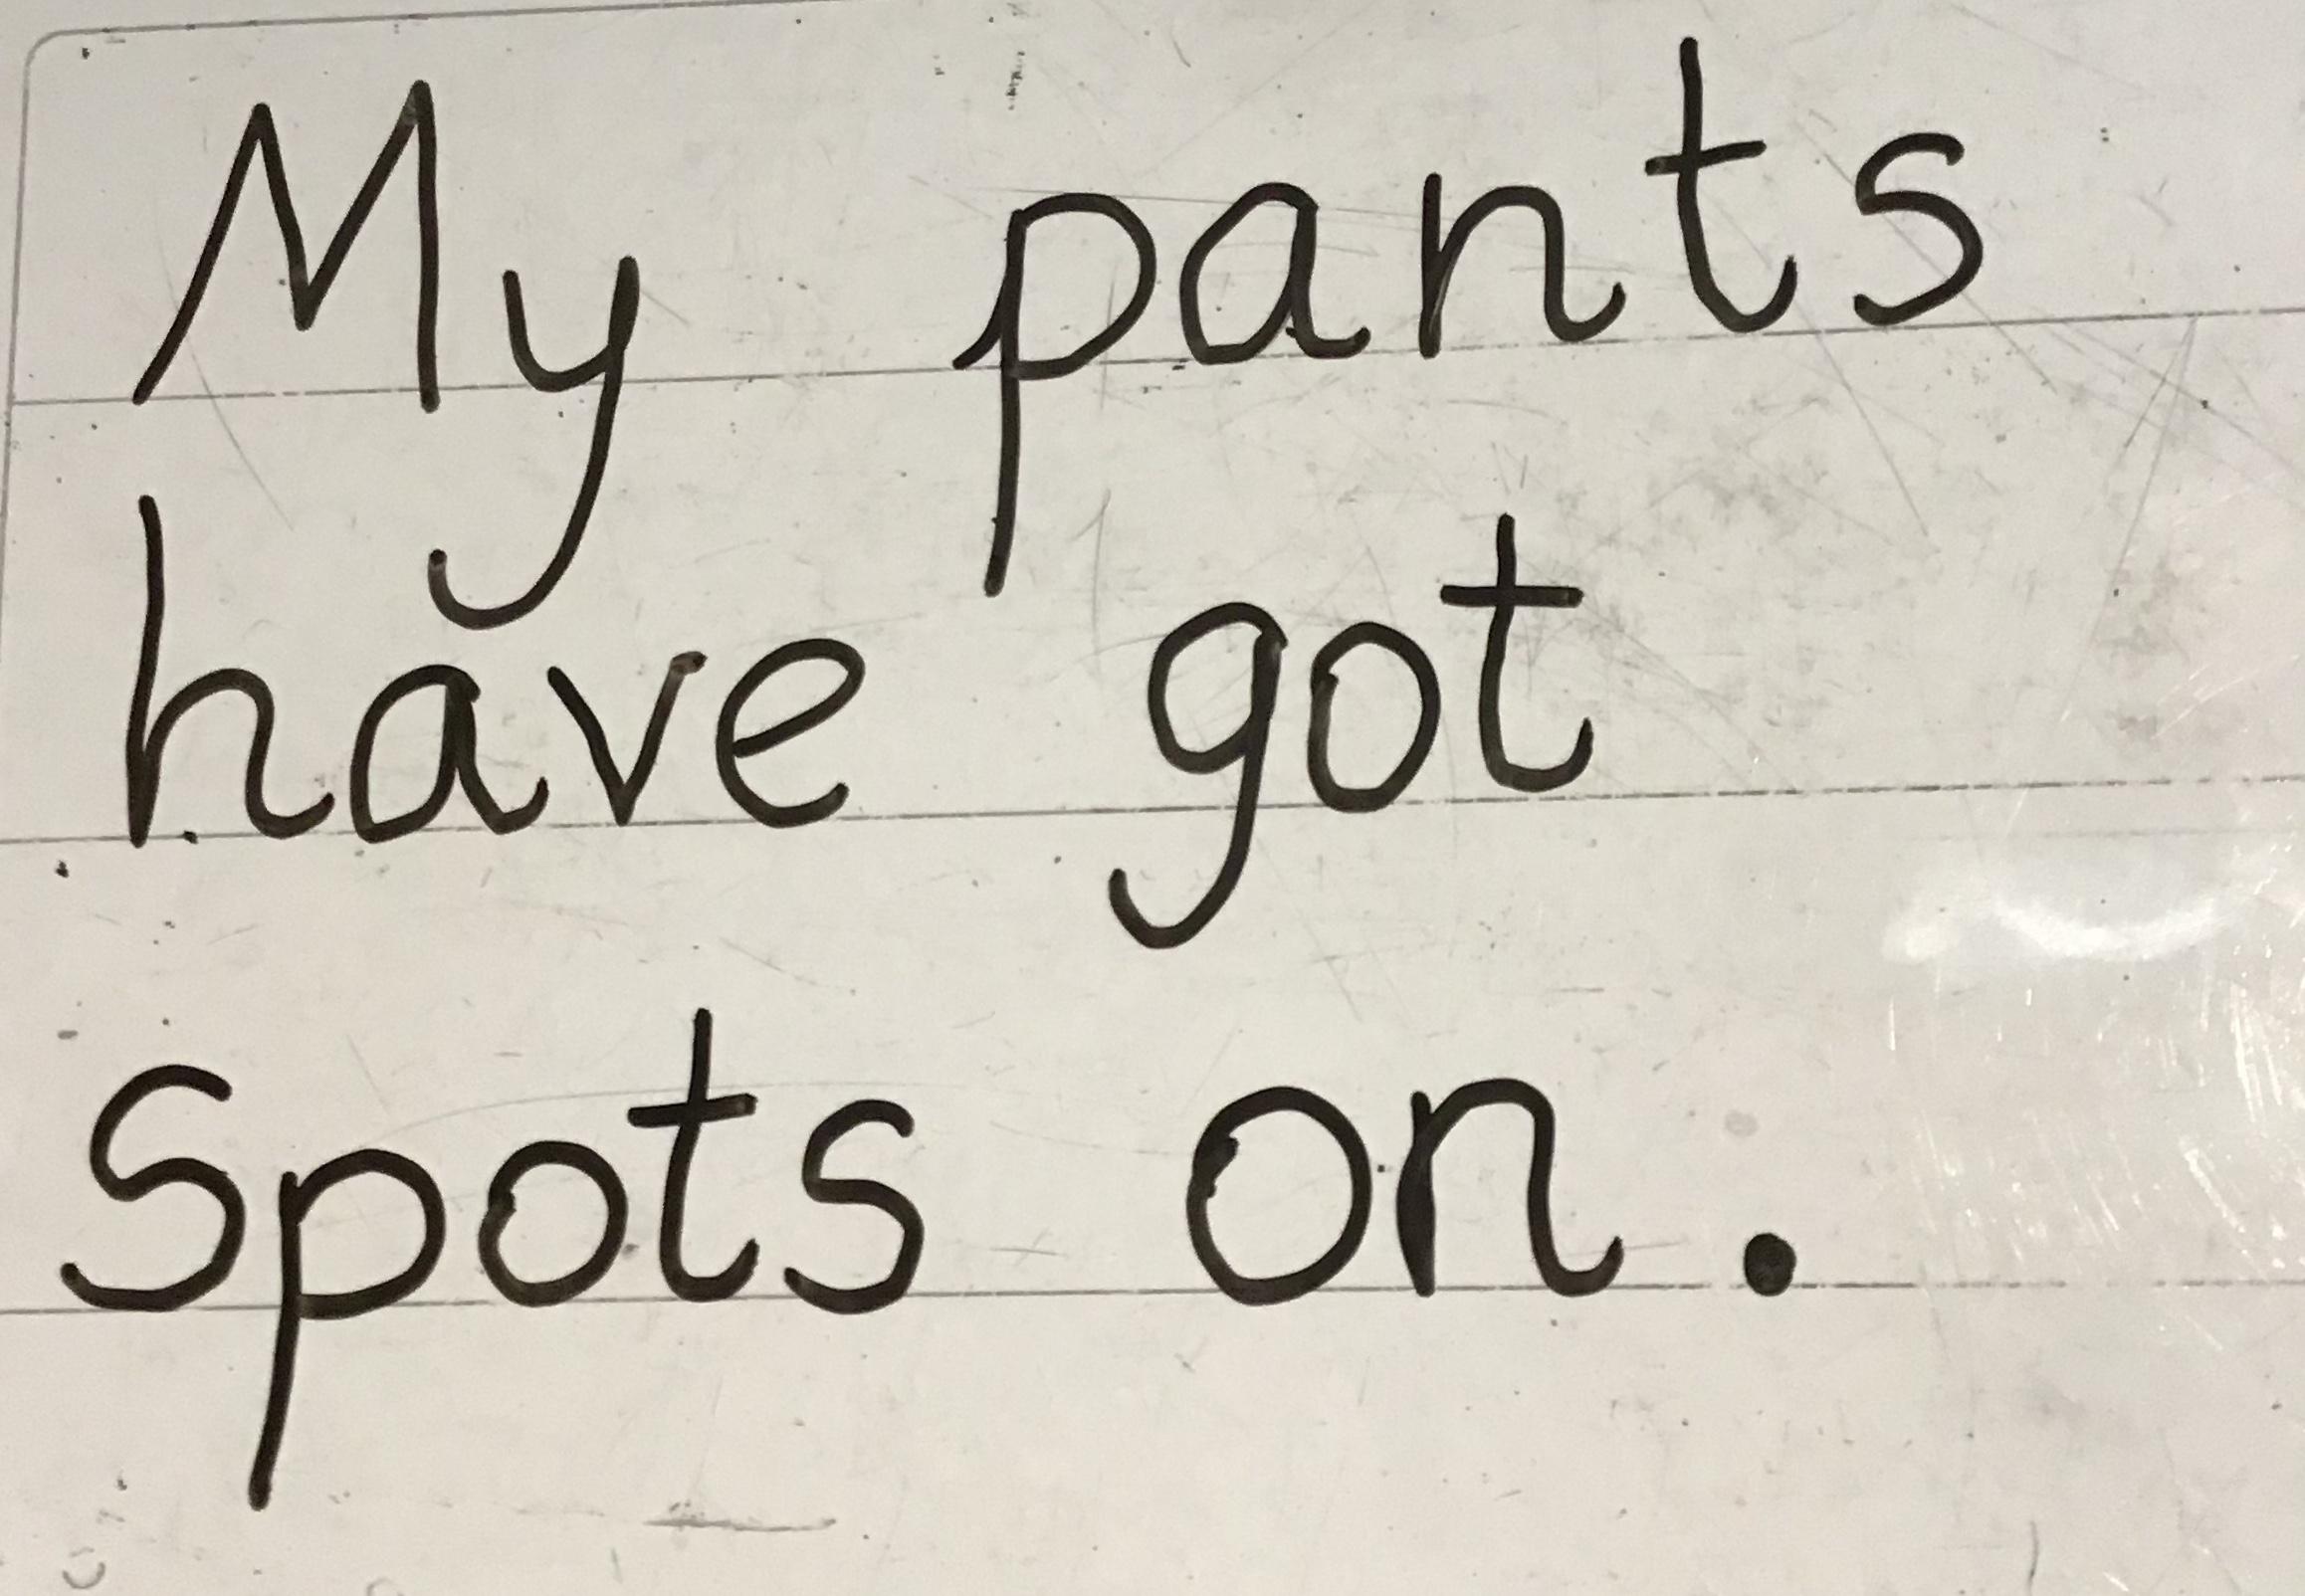 My pants
have got
spots on.